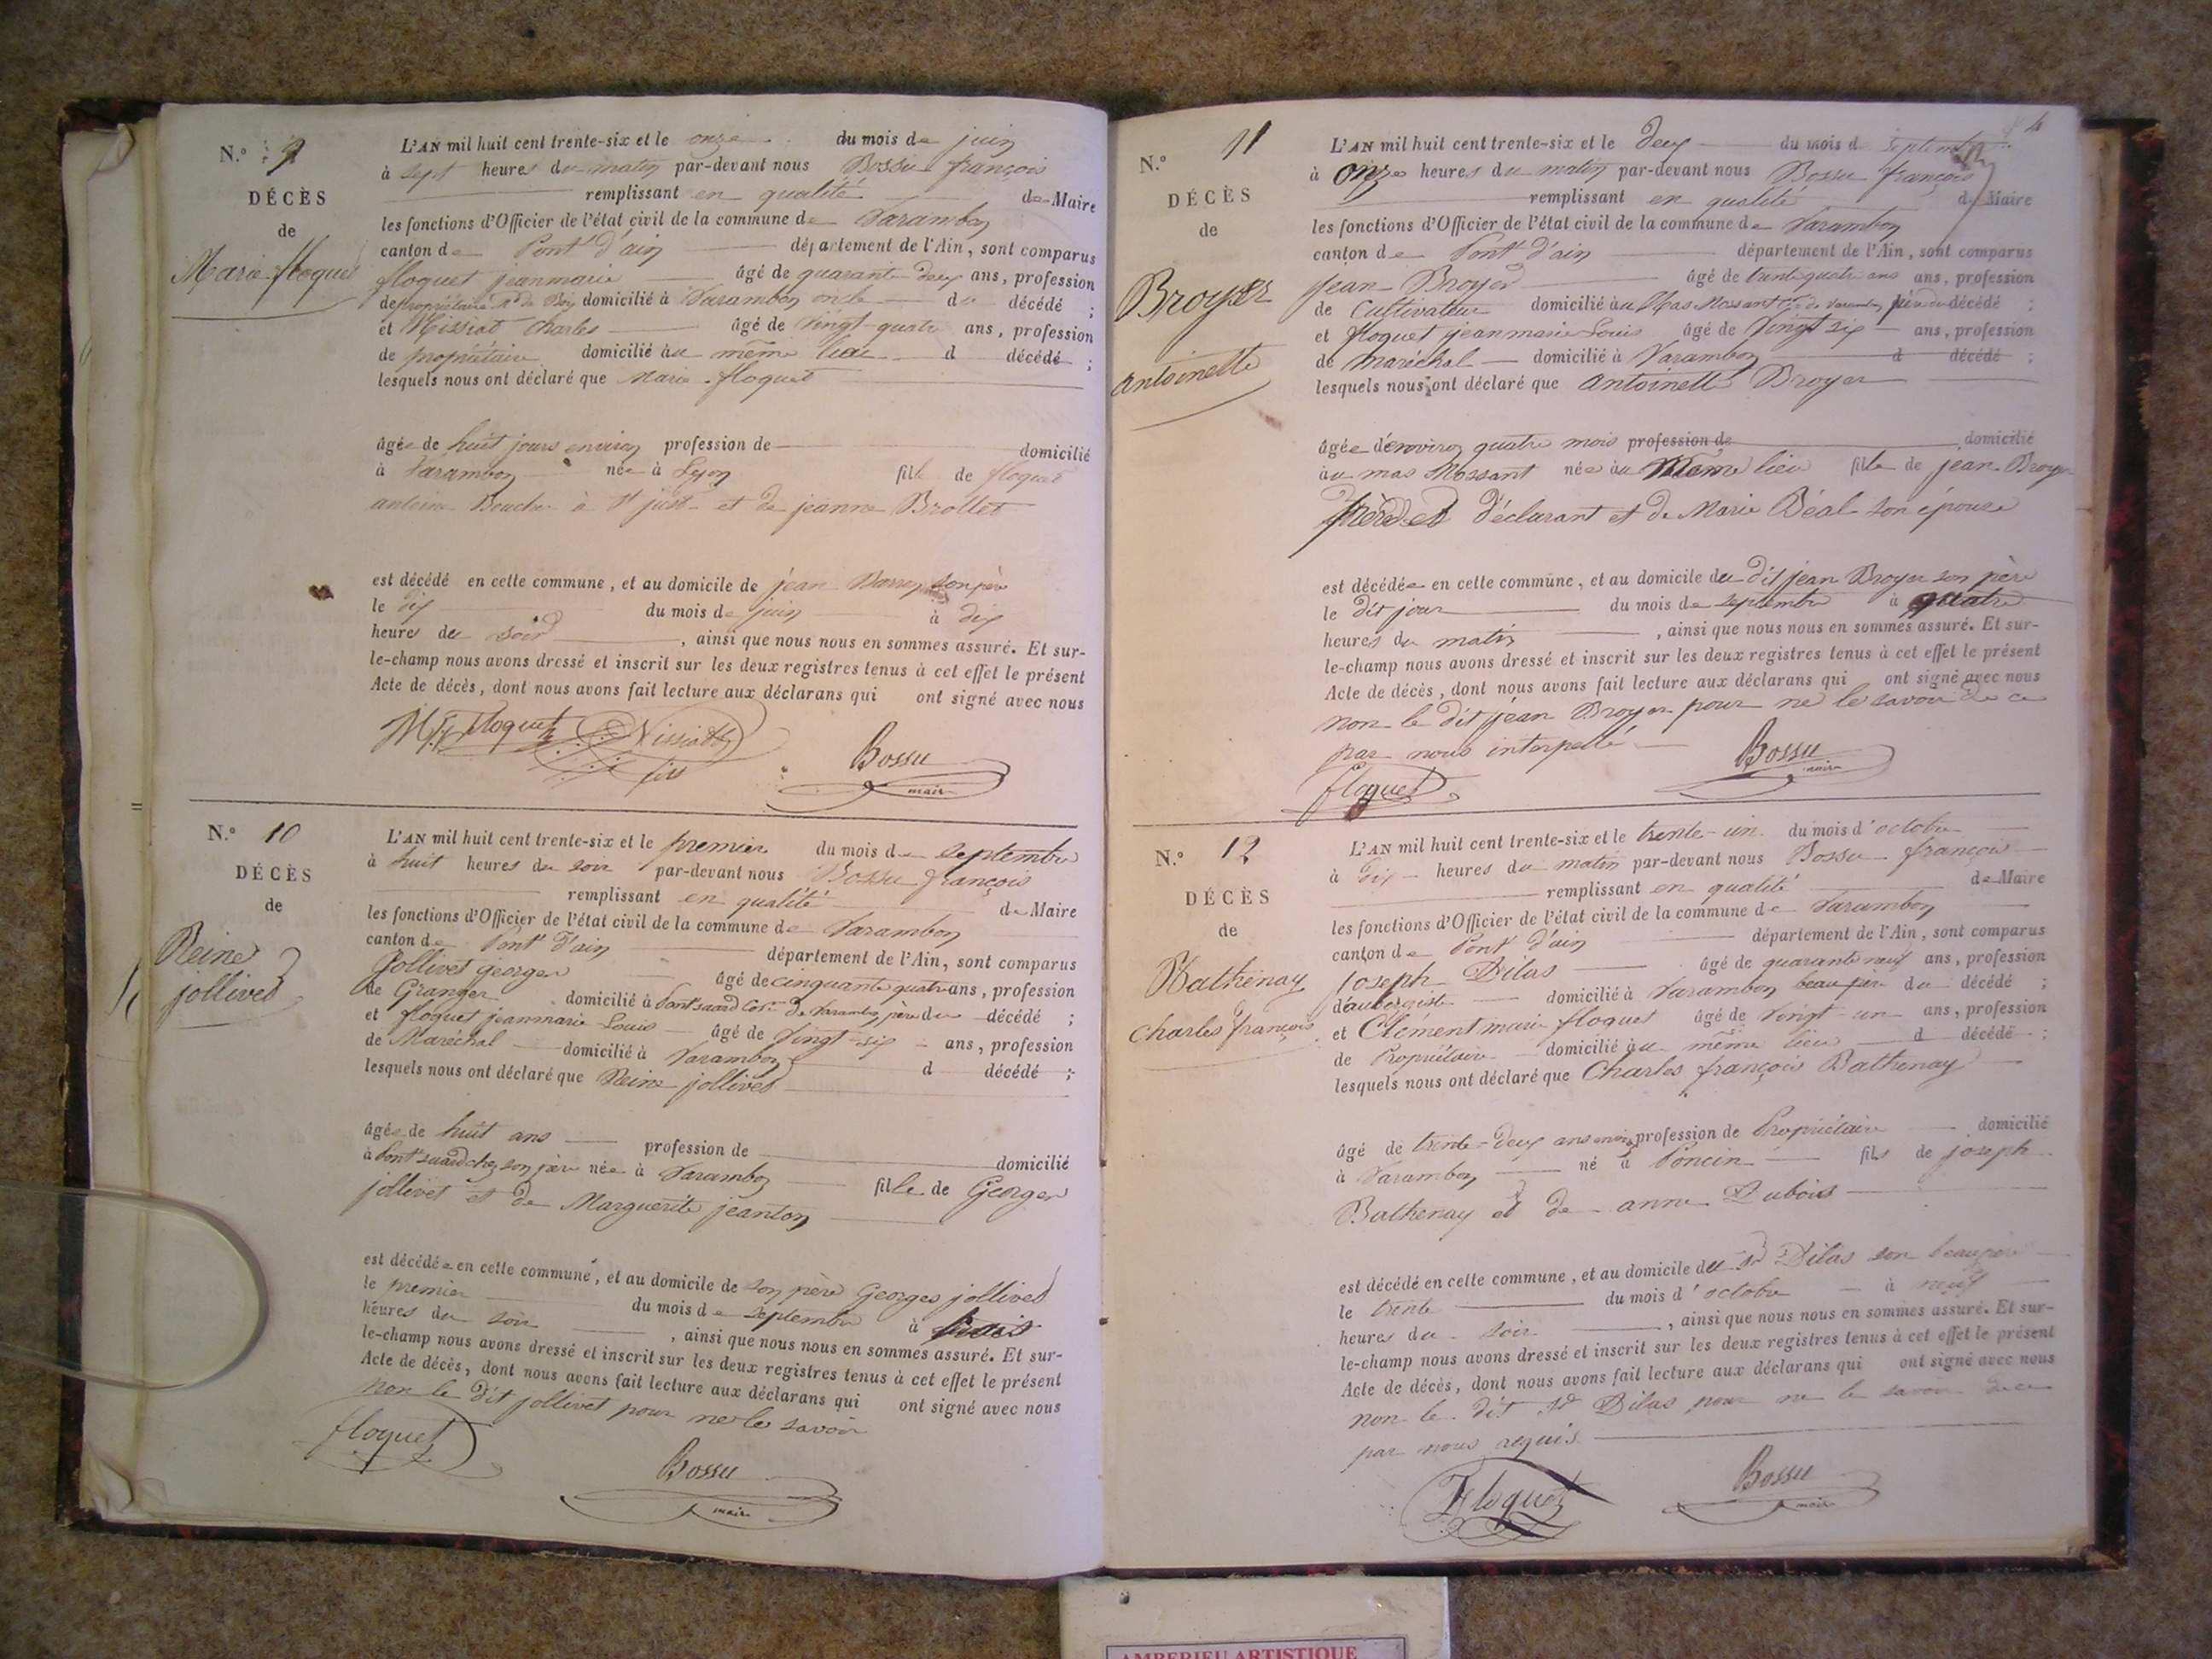 N.° 9
DÉCÈS
de
Marie floquet
L'AN mil huit cent trente-six et le onze du mois de juin
à sept heures du matin par-devant nous Bossu françois
remplissant en qualité de Maire
les fonctions d'Officier de l'état civil de la commune de Varambon
canton de Pont d'ain département de l'Ain, sont comparus
floquet jeanmarie âgé de quarante-deux ans, profession
de propriétaire Md de Bois domicilié à Varambon oncle du décédé ;
et Missiat Charles âgé de vingt-quatre ans, profession
de propriétaire domicilié au même lieu d décédé ;
lesquels nous ont déclaré que Marie floquet
âgée de huit jours environ profession de domicilié
à Varambon née à Lyon fille de floquet
antoine Boucher à St just et de jeanne Brollet
est décédé en cette commune, et au domicile de jean
le dix du mois de juin à dix
heures du soir, ainsi que nous nous en sommes assuré. Et sur-
le-champ nous avons dressé et inscrit sur les deux registres tenus à cet effet le présent
Acte de décès, dont nous avons fait lecture aux déclarans qui ont signé avec nous
floquet Missiat fils
Bossu
maire
N.° 10
DÉCÈS
de
Reine
jollivet
L'AN mil huit cent trente-six et le premier du mois de septembre
à huit heures du soir par-devant nous Bossu françois
remplissant en qualité de Maire
les fonctions d'Officier de l'état civil de la commune de Varambon
canton de Pont d'ain département de l'Ain, sont comparus
Jollivet georges âgé de cinquante quatre ans, profession
de Granger domicilié à Pontsuard Cne de Varambon, père du décédé ;
et floquet jeanmarie Louis âgé de vingt-six ans, profession
de Maréchal domicilié à Varambon d décédé ;
lesquels nous ont déclaré que Reine jollivet
âgée de huit ans profession de domicilié
à Pontsuard chez son père née à Varambon fille de Georges
jollivet et de Marguerite jeanton
est décédée en cette commune, et au domicile de son père Georges jollivet
le premier du mois de septembre à
heures du soir, ainsi que nous nous en sommes assuré. Et sur-
le-champ nous avons dressé et inscrit sur les deux registres tenus à cet effet le présent
Acte de décès, dont nous avons fait lecture aux déclarans qui ont signé avec nous
non le dit jollivet pour ne le savoir
floquet
Bossu
maire
4
N.° 11
DÉCÈS
de
Broyer
antoinette
L'AN mil huit cent trente-six et le deux du mois de septembre
à onze heures du matin par-devant nous Bossu françois
remplissant en qualité de Maire
les fonctions d'Officier de l'état civil de la commune de Varambon
canton de Pont d'ain département de l'Ain, sont comparus
jean Broyer âgé de trente quatre ans ans, profession
de Cultivateur domicilié au Mas Mossant Cne de Varambon, père du décédé ;
et floquet jeanmarie Louis âgé de vingt six ans, profession
de Maréchal domicilié à Varambon d décédé ;
lesquels nous ont déclaré que antoinette Broyer
âgée d'environ quatre mois profession de domicilié
au mas Mossant née au même lieu fille de jean Broyer
déclarant et de Marie Béal son épouse
est décédée en cette commune, et au domicile du dit jean Broyer son père
le dit jour du mois de septembre à quatre
heures du matin, ainsi que nous nous en sommes assuré. Et sur-
le-champ nous avons dressé et inscrit sur les deux registres tenus à cet effet le présent
Acte de décès, dont nous avons fait lecture aux déclarans qui ont signé avec nous
non le dit jean Broyer pour ne le savoir de ce
par nous interpellé
floquet
Bossu
maire
N.° 12
DÉCÈS
de
Bathenay
charles françois
L'AN mil huit cent trente-six et le trente-un du mois d'octobre
à dix heures du matin par-devant nous Bossu françois
remplissant en qualité de Maire
les fonctions d'Officier de l'état civil de la commune de Varambon
canton de Pont d'ain département de l'Ain, sont comparus
Joseph Dilas âgé de quarante neuf ans, profession
d'aubergiste domicilié à Varambon beau père du décédé ;
et Clément marie floquet âgé de vingt-un ans, profession
de Propriétaire domicilié au même lieu d décédé ;
lesquels nous ont déclaré que Charles françois Bathenay
âgé de trente-deux ans environ profession de Propriétaire domicilié
à Varambon né à Poncin fils de joseph
Bathenay et de anne Dubois
est décédé en cette commune, et au domicile du Sr Dilas son beau père
le trente du mois d'octobre à neuf
heures du soir, ainsi que nous nous en sommes assuré. Et sur-
le-champ nous avons dressé et inscrit sur les deux registres tenus à cet effet le présent
Acte de décès, dont nous avons fait lecture aux déclarans qui ont signé avec nous
non le dit Sr Dilas pour ne le savoir de ce
par nous requis
Floquet
Bossu
maire
AMBERIEU ARTISTIQUE